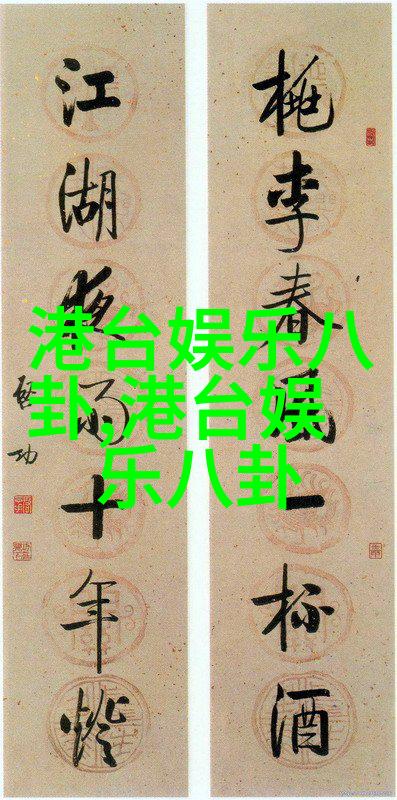 桃李春風一杯酒
江湖夜雨十年燈
啟功
港台娱乐八
卦,港台娱
乐八卦